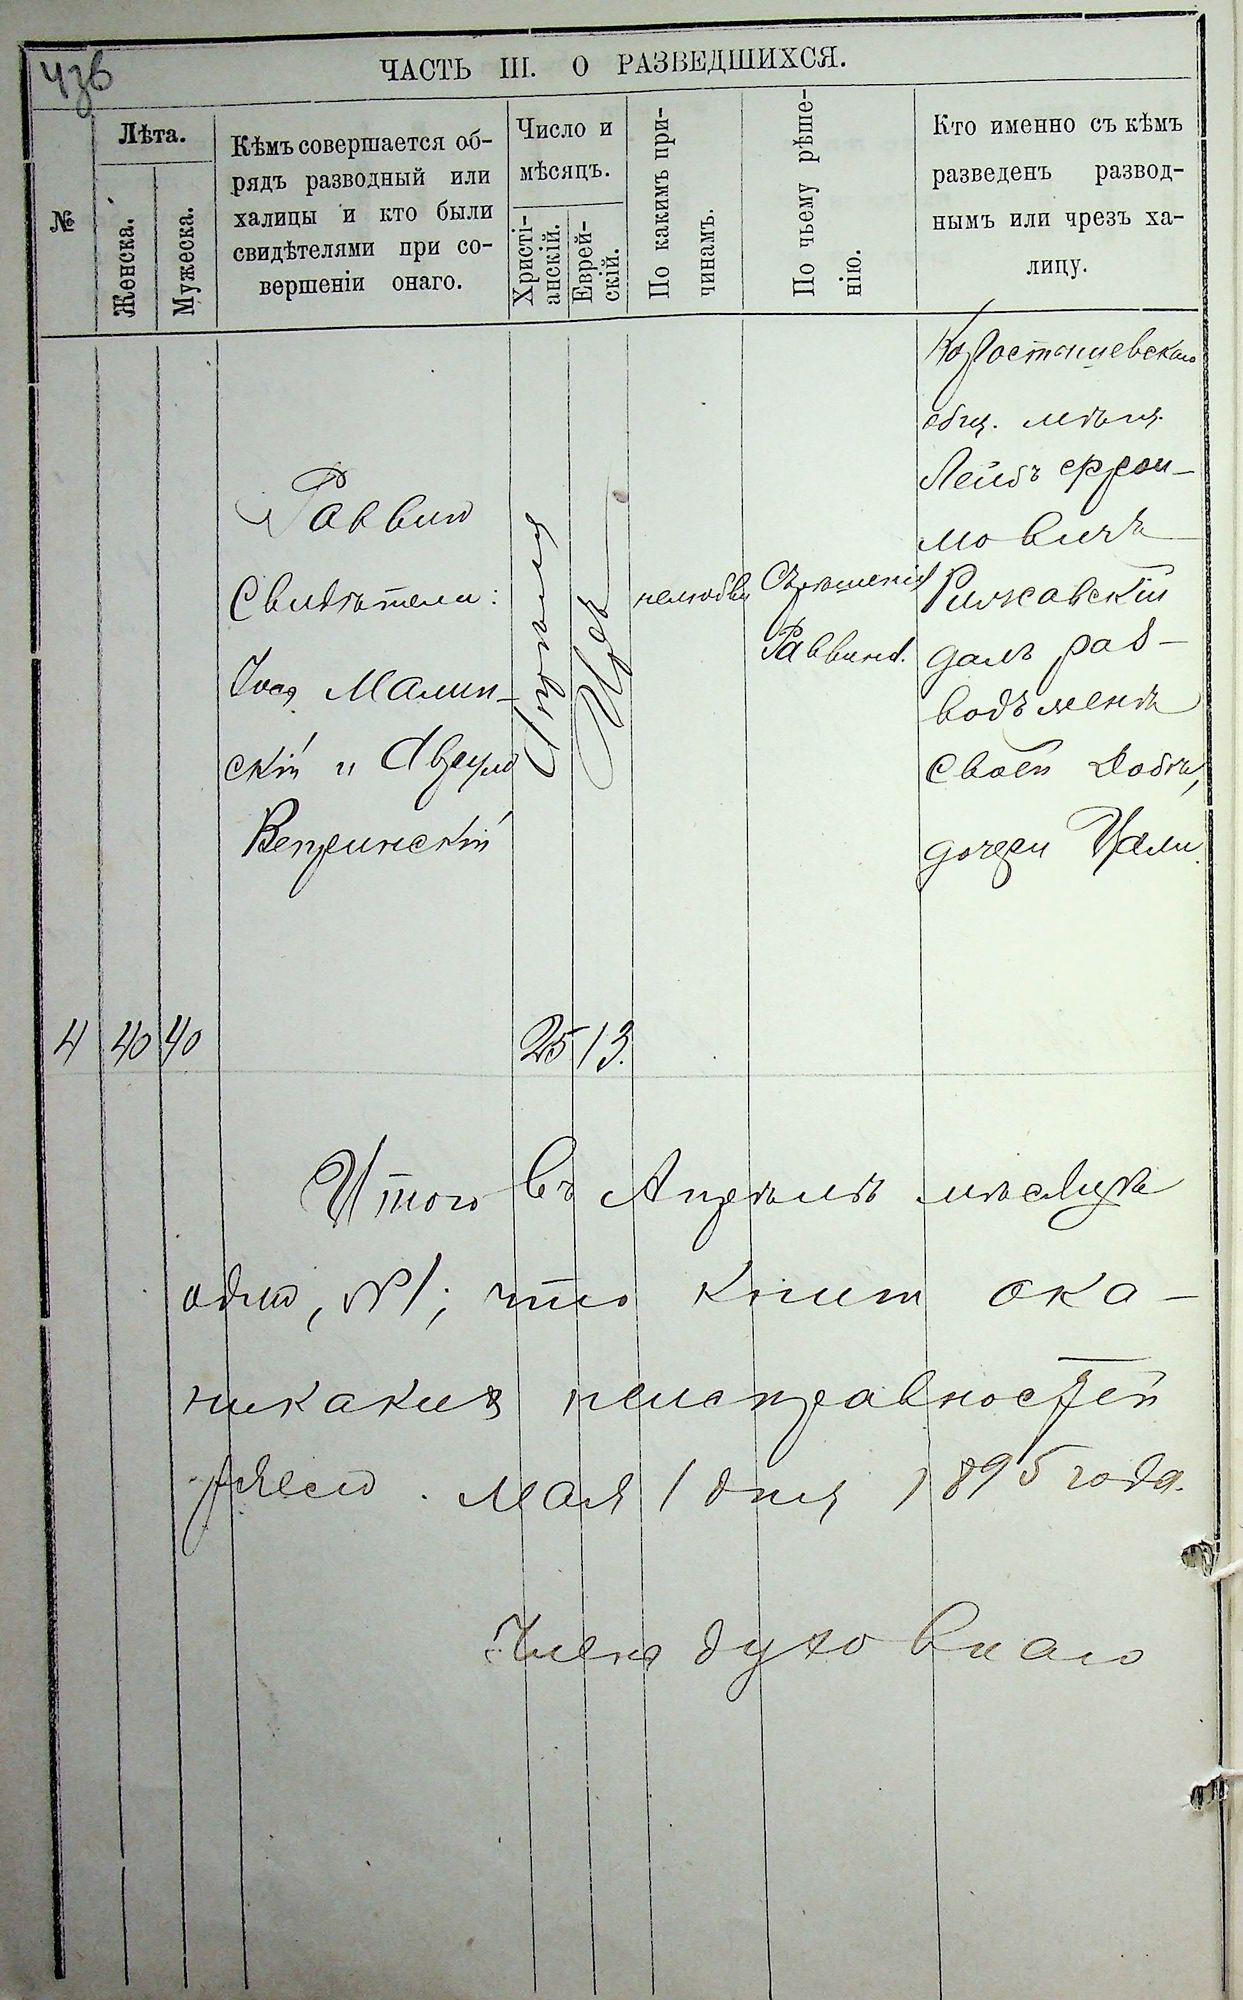 436
ЧАСТЬ III. О РАЗВЕДШИХСЯ.
№
Лѣта.
Женска.
Мужеска.
Кѣмъ совершается об-
рядъ разводный или
халицы и кто были
свидѣтелями при со-
вершеніи онаго.
Число и
мѣсяцъ.
Христі-
анскій.
Еврей-
скій.
По какимъ при-
чинамъ.
По чьему рѣше-
нію.
Кто именно съ кѣмъ
разведенъ развод-
нымъ или чрезъ ха-
лицу.
4
40
40
Раввин
Свидѣтели:
Малин-
скій и
Вепринскій
Апреля
25
Иръ
13.
нелюбви
Съ решенія
Раввина.
Коростышевскаго
общ. мѣщ.
Лейбъ Фрои-
мовичъ
Рижавскій
далъ раз-
водъ женѣ
своей Добѣ,
дочери
Итого въ Апрелѣ мѣсяцѣ
один, №1; что книги ока-
никаких неисправностей
Мая 1 дня 1895 года.
Член духовнаго